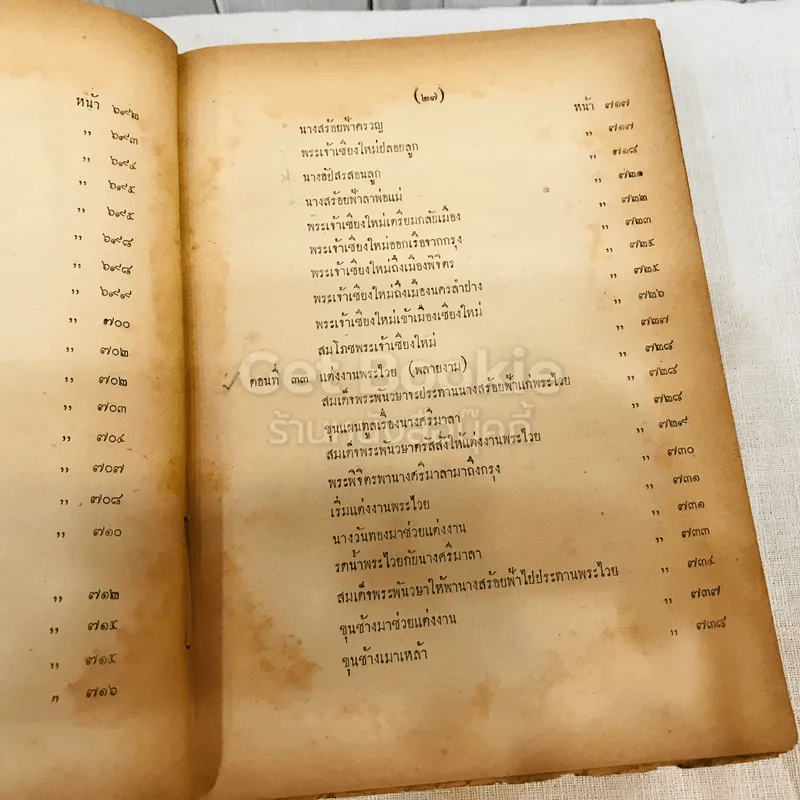 หน้า ๖๙๒
,, ๖๙๓
,, ๖๙๔
,, ๖๙๕
,, ๖๙๕
,, ๖๙๘
,, ๖๙๘
,, ๖๙๙
,, ๗๐๐
,, ๗๐๒
,, ๗๐๒
,, ๗๐๓
,, ๗๐๔
,, ๗๐๗
,, ๗๐๘
,, ๗๑๐
,, ๗๑๒
,, ๗๑๕
,, ๗๑๕
,, ๗๑๖
(๒๗)
นางสร้อยฟ้าครวญ หน้า ๗๑๗
พระเจ้าเชียงใหม่ปลอยลูก ,, ๗๑๗
นางอัปสรสอนลูก ,, ๗๑๘
นางสร้อยฟ้าลาพ่อแม่ ,, ๗๒๑
พระเจ้าเชียงใหม่เตรียมกลับเมือง ,, ๗๒๒
พระเจ้าเชียงใหม่ออกเรือจากกรุง ,, ๗๒๓
พระเจ้าเชียงใหม่ถึงเมืองพิจิตร ,, ๗๒๕
พระเจ้าเชียงใหม่ถึงเมืองนครลำปาง ,, ๗๒๕
พระเจ้าเชียงใหม่เข้าเมืองเชียงใหม่ ,, ๗๒๖
สมโภชพระเจ้าเชียงใหม่ ,, ๗๒๗
ตอนที่ ๓๓ แต่งงานพระไวย (พลายงาม) ,, ๗๒๘
สมเด็จพระพันวษาจะประทานนางสร้อยฟ้าแก่พระไวย ,, ๗๒๘
ขุนแผนทูลเรื่องนางศรีมาลา ,, ๗๒๘
สมเด็จพระพันวษาตรัสสั่งให้แต่งงานพระไวย ,, ๗๒๙
พระพิจิตรพานางศรีมาลามาถึงกรุง ,, ๗๓๐
เริ่มแต่งงานพระไวย ,, ๗๓๑
นางวันทองมาช่วยแต่งงาน ,, ๗๓๑
รดน้ำพระไวยกับนางศรีมาลา ,, ๗๓๓
สมเด็จพระพันวษาให้พานางสร้อยฟ้าไปประทานพระไวย ,, ๗๓๔
ขุนช้างมาช่วยแต่งงาน ,, ๗๓๗
ขุนช้างเมาเหล้า ,, ๗๓๘
Get Bookie
ร้านหนังสือบุ๊คกี้